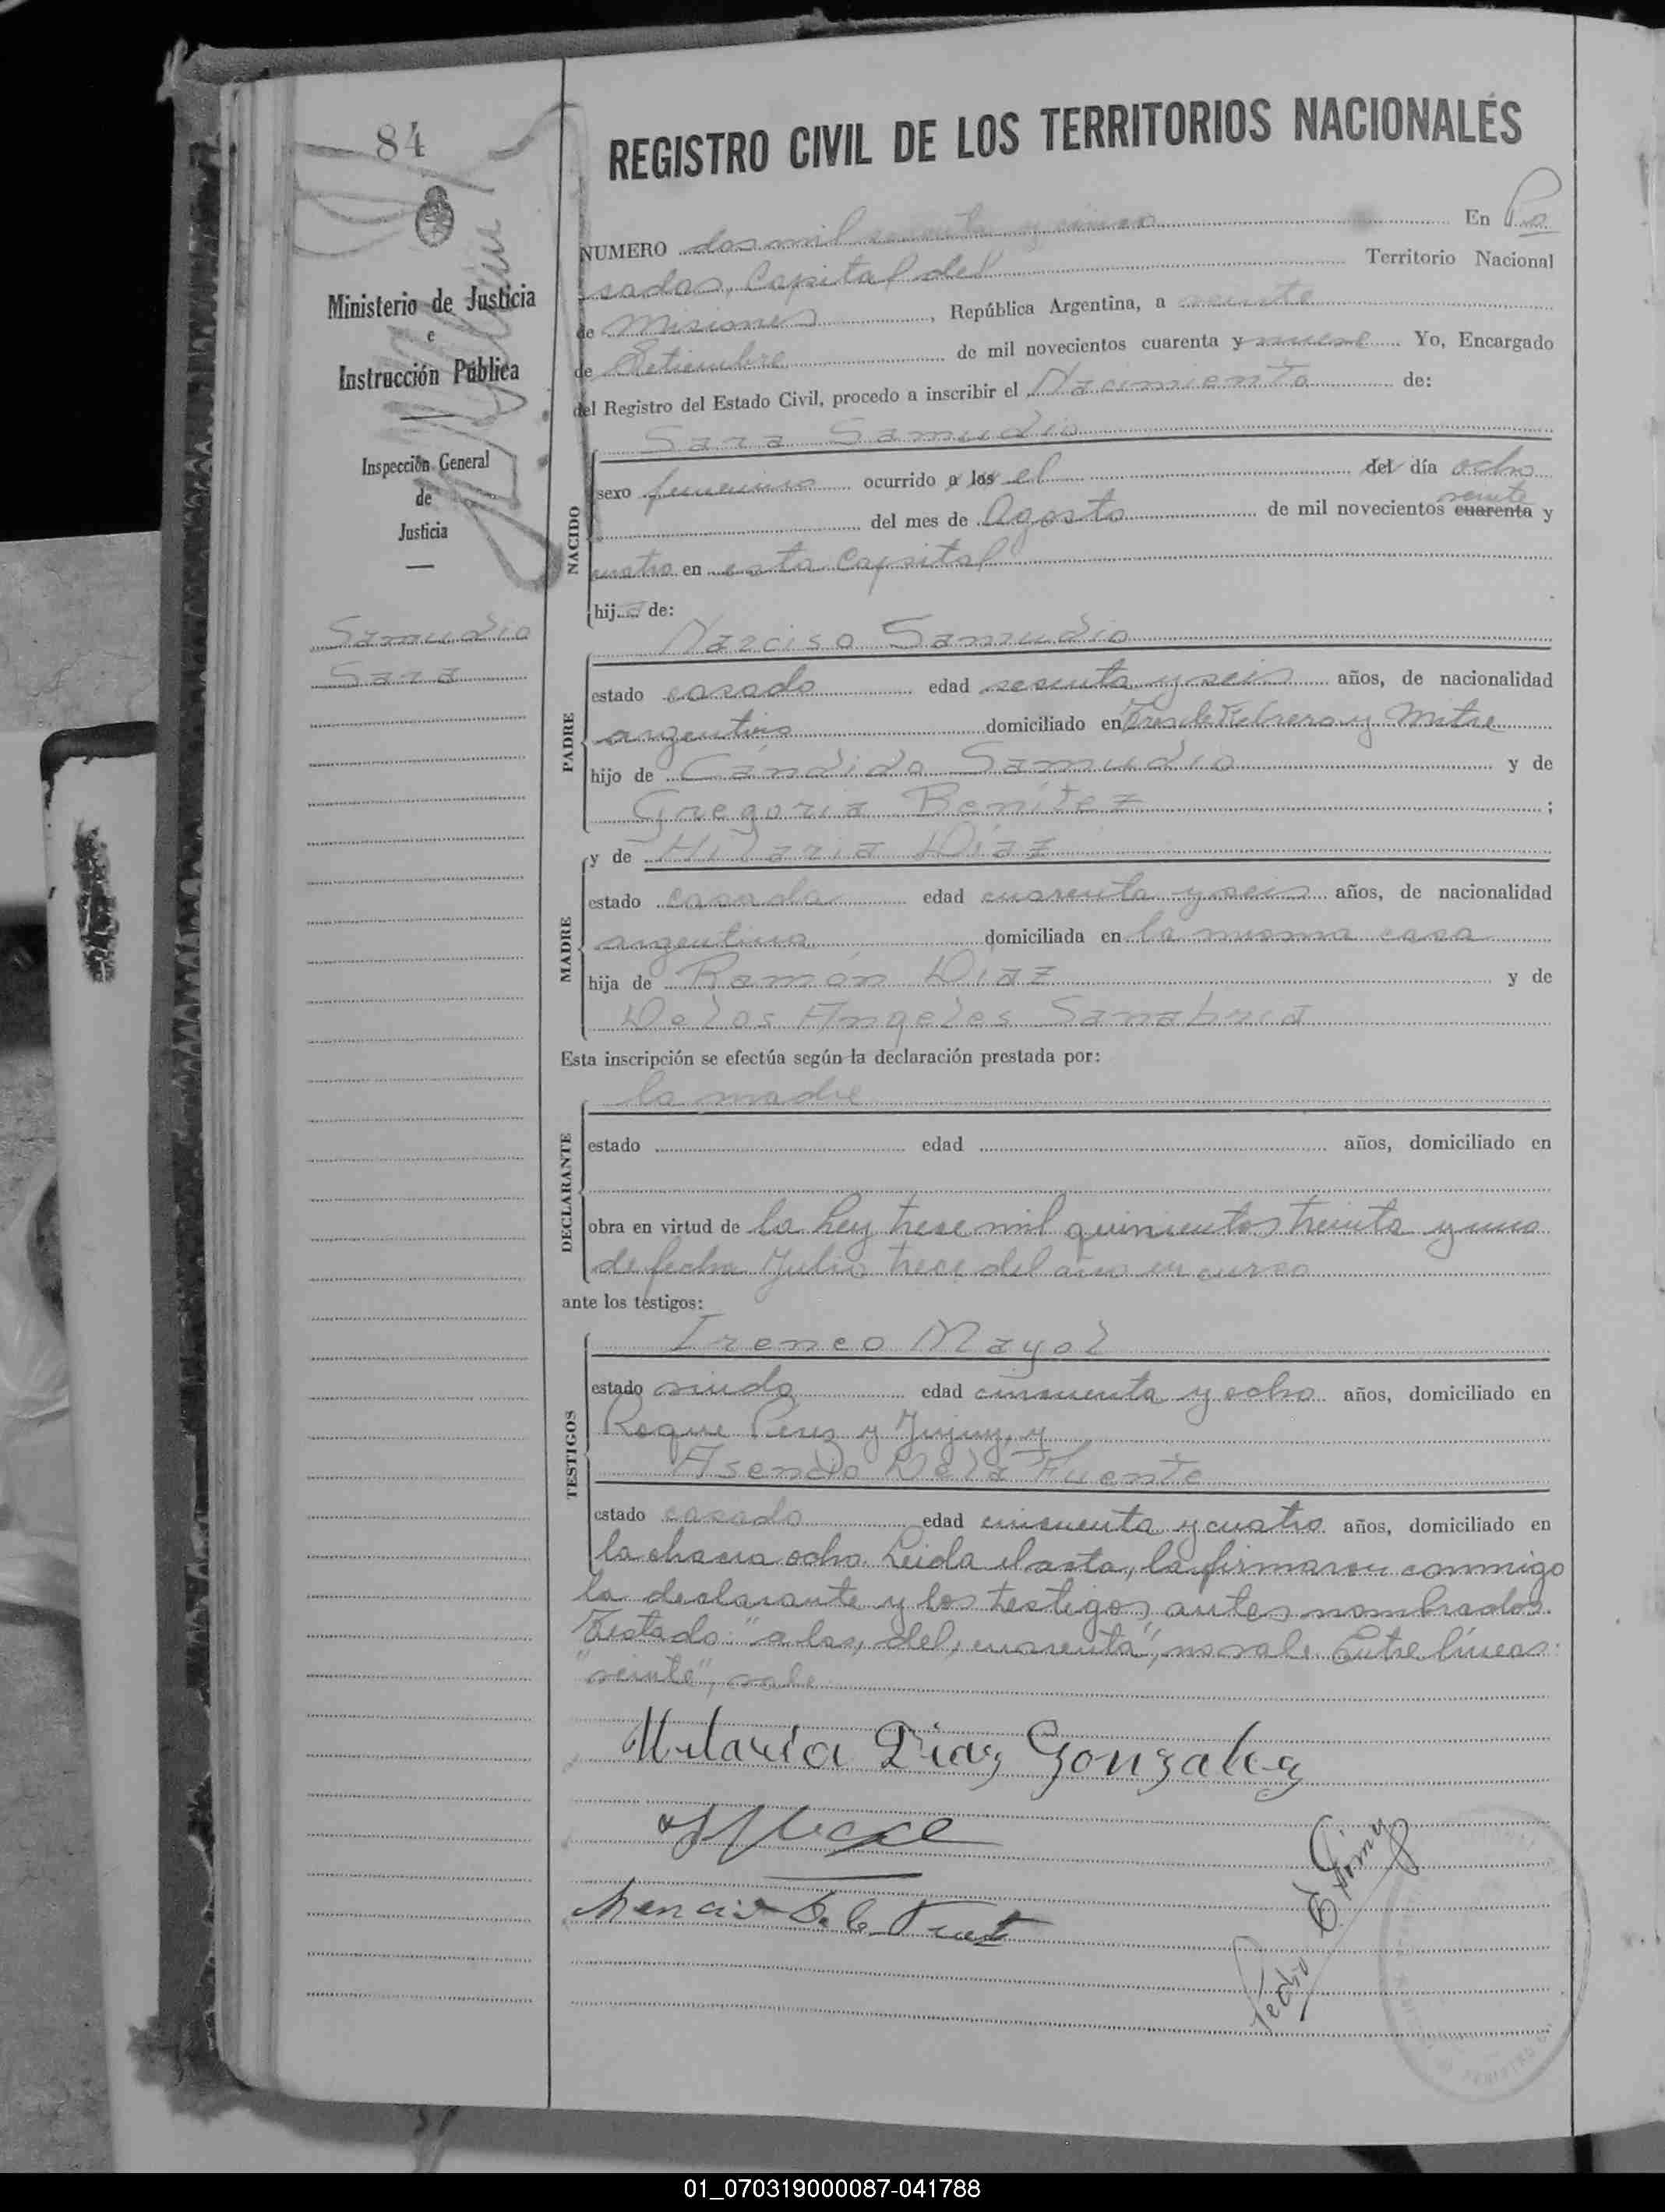 84
REGISTRO CIVIL DE LOS TERRITORIOS NACIONALES
NUMERO dos mil y cinco En Po
sadas, Capital del Territorio Nacional
de Misiones, República Argentina, a veinte
de Setiembre de mil novecientos cuarenta y nueve Yo, Encargado
del Registro del Estado Civil, procedo a inscribir el Nacimiento de:
Ministerio de Justicia
e
Instrucción Pública
Inspección General
de
Justicia
Samudio
Sara
NACIDO
Sara Samudio
sexo femenino ocurrido a las el del día ocho
veinte
del mes de Agosto de mil novecientos cuarenta y
cuatro en esta Capital
hija de:
PADRE
Narciso Samudio
estado casado edad sesenta y seis años, de nacionalidad
argentino domiciliado en Tres de Febrero y Mitre
hijo de Cándido Samudio y de
Gregoria Benítez ;
MADRE
y de Hilaria Díaz
estado casada edad cuarenta y seis años, de nacionalidad
argentina domiciliada en la misma casa
hija de Ramón Díaz y de
De los Angeles Sanabria
Esta inscripción se efectúa según la declaración prestada por:
DECLARANTE
la madre
estado edad años, domiciliado en
obra en virtud de la Ley trece mil quinientos treinta y uno
de fecha Julio trece del año en curso
ante los testigos:
TESTIGOS
Ireneo Mayol
estado viudo edad cincuenta y ocho años, domiciliado en
Roque Perez y Jujuy, y
Asencio De la Fuente
estado casado edad cincuenta y cuatro años, domiciliado en
la chacra ocho. Leida el acta, la firmaron conmigo
la declarante y los testigos antes nombrados.
Testado: "a las, del, cuarenta", no vale. Entre líneas:
"veinte", vale
Hilaria Diaz Gonzalez
Asencio De la Fuente
Pedro E.
01_070319000087-041788